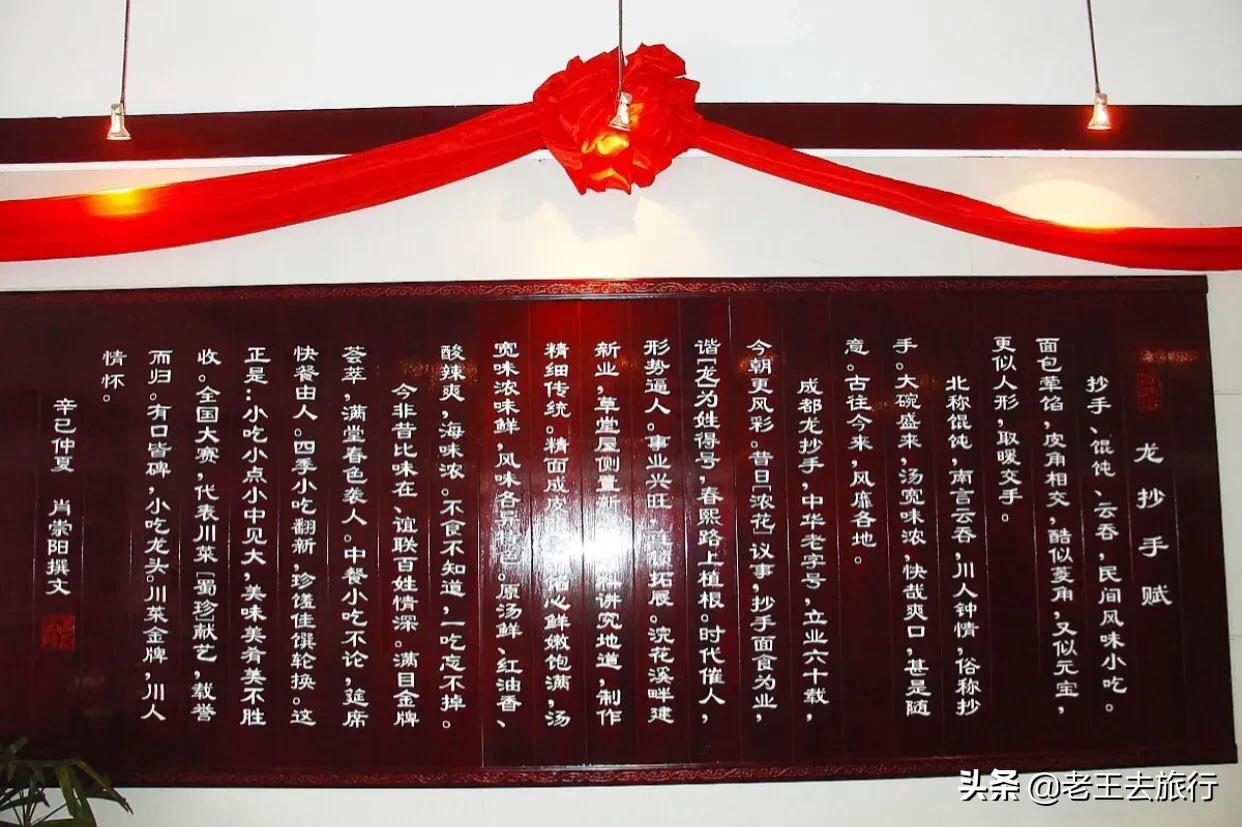 龙抄手赋
抄手、馄饨、云吞，民间风味小吃。
面包荤馅，皮角相交，酷似菱角，又似元宝，
更似人形，取暖交手。
北称馄饨，南言云吞，川人钟情，俗称抄
手。大碗盛来，汤宽味浓，快哉爽口，甚是随
意。古往今来，风靡各地。
成都龙抄手，中华老字号，立业六十载，
今朝更风彩。昔日「浓花」议事，抄手面食为业，
谐「龙」为姓得号，春熙路上植根。时代催人，
形势逼人。事业兴旺，拓展。浣花溪畔建
新业，草堂屋侧置新讲究地道，制作
精细传统。精面成皮心鲜嫩饱满，汤
宽味浓味鲜，风味各色。原汤鲜、红油香、
酸辣爽，海味浓。不食不知道，一吃忘不掉。
今非昔比味在、谊联百姓情深。满目金牌
荟萃，满堂春色袭人。中餐小吃不论，筵席
快餐由人。四季小吃翻新，珍馐佳馔轮换。这
正是：小吃小点小中见大，美味美肴美不胜
收。全国大赛，代表川菜「蜀珍」献艺，载誉
而归。有口皆碑，小吃龙头。川菜金牌，川人
情怀。
辛巳仲夏 肖崇阳撰文
头条 @老王去旅行